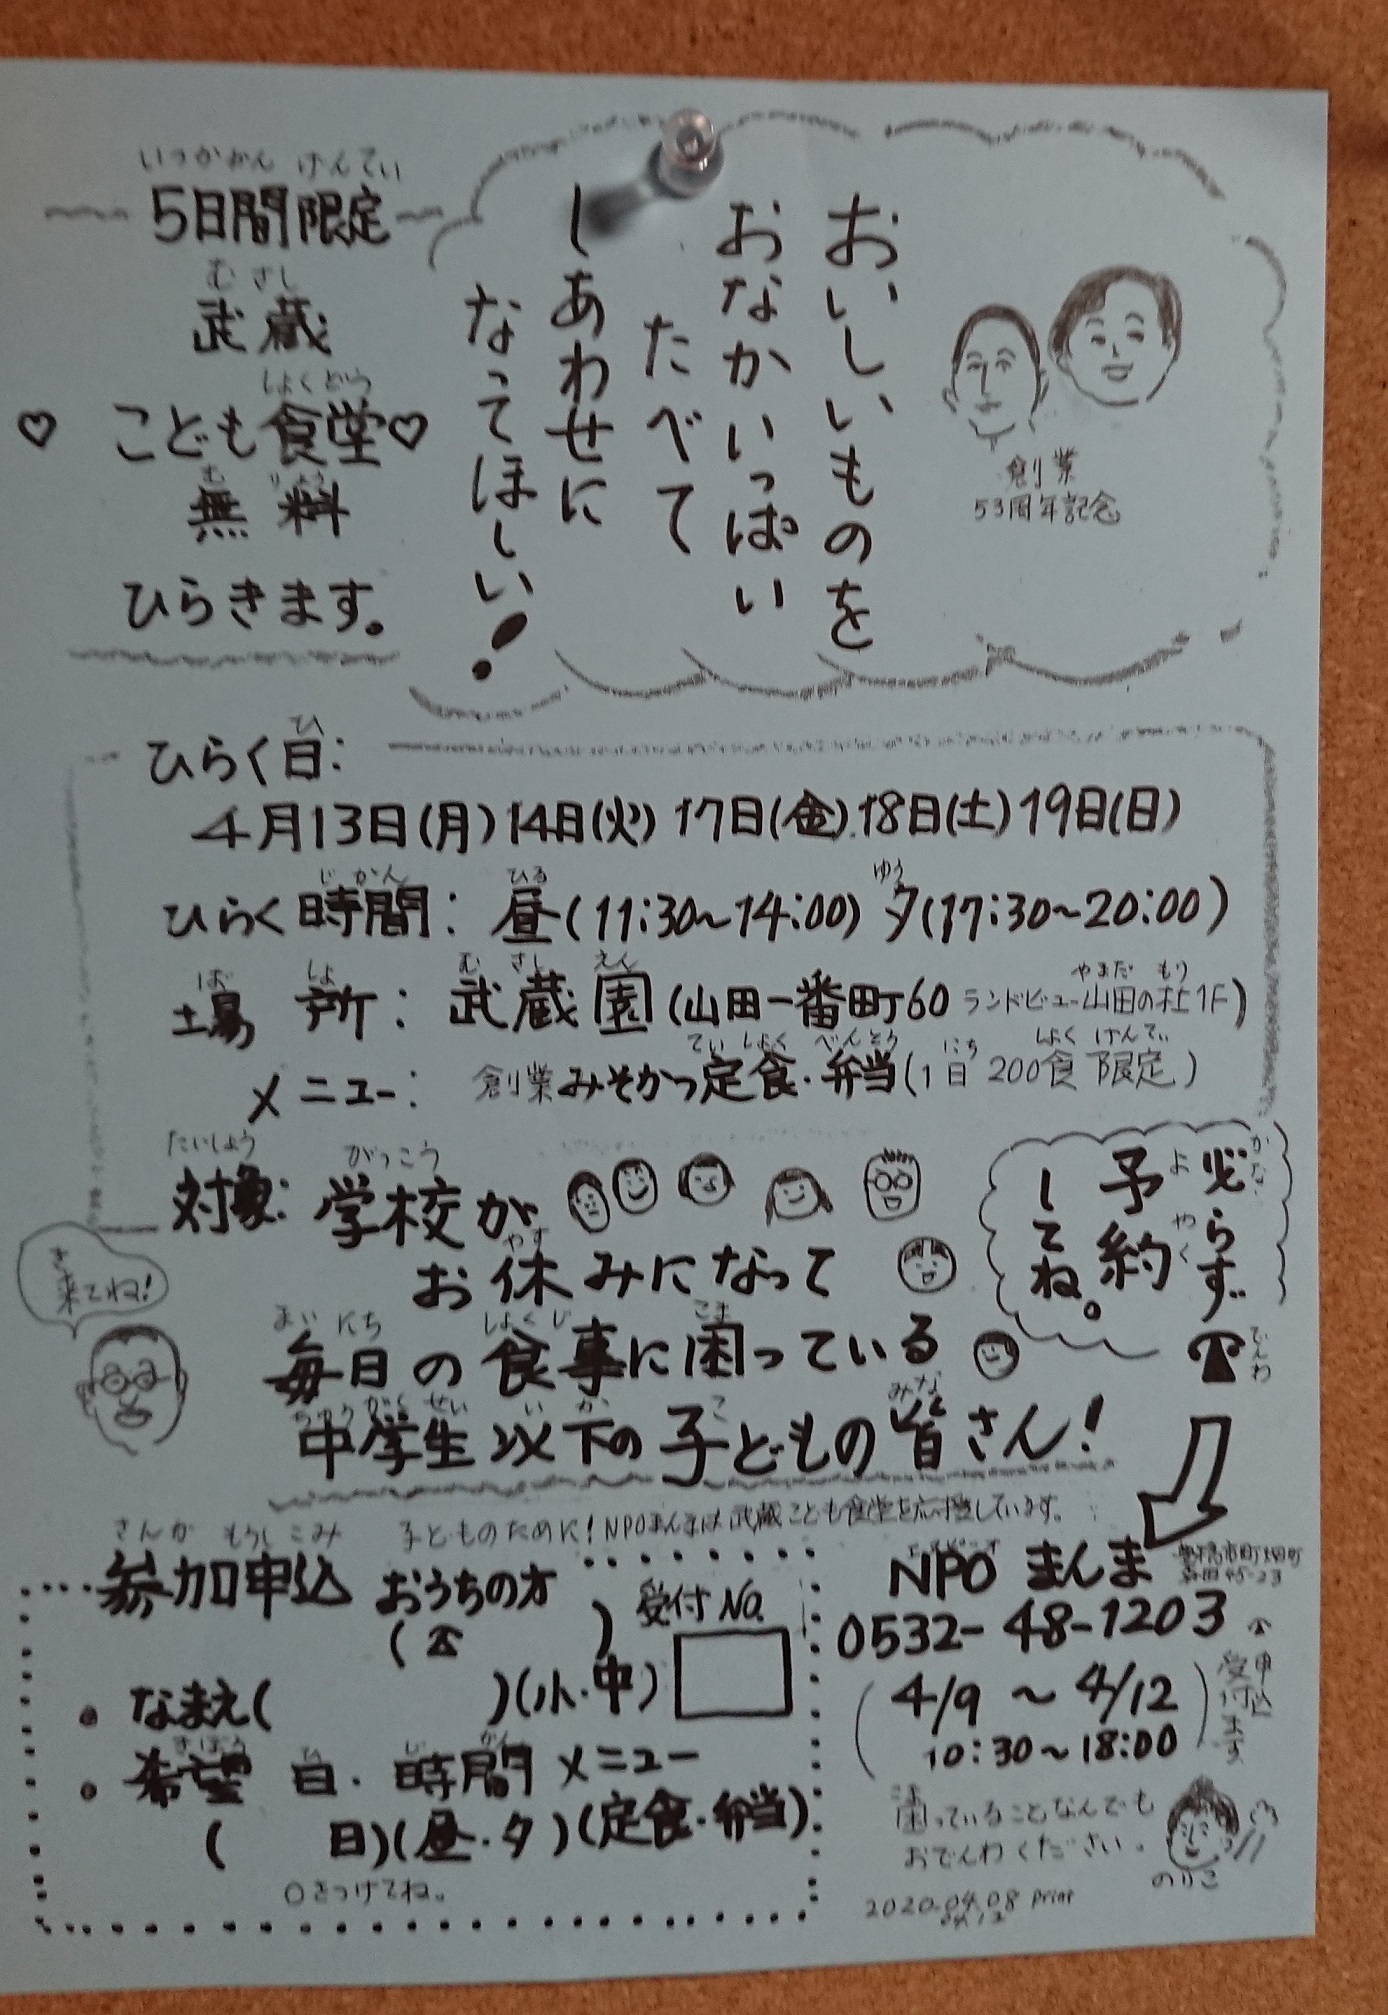 いつかかん げんてい
5日間限定
むさし
武蔵
しょくどう
♡ こども食堂♡
むりょう
無料
ひらきます。
おいしいものを
おなかいっぱい
たべて
しあわせに
なってほしい!
創業
53周年記念
ひ
ひらく日:
4月13日(月)14日(火)17日(金).18日(土)19日(日)
じかん ひる ゆう
ひらく時間: 昼(11:30~14:00) 夕(17:30~20:00)
ばしょ むさしえん やまだ もり
場所: 武蔵園(山田一番町60 ランドビュー山田の杜1F)
ていしょく べんとう にち しょく げんてい
メニュー: 創業みそかつ定食・弁当(1日 200食 限定)
たいしょう がっこう
対象: 学校が
やす
お休みになって
まいにち しょくじ こま
毎日の食事に困っている
ちゅうがくせい いか こ みな
中学生以下の子どもの皆さん!
かな
必らず
よやく
予約
してね。
でんわ
き
来てね!
子どものために!NPOまんまは武蔵こども食堂を応援しています。
さんか もうしこみ
参加申込 おうちの方
(☎ )
受付No.
・なまえ( )(小・中)
きぼう ひ じかん
・希望 日・時間 メニュー
( 日)(昼・夕)(定食・弁当)
○をつけてね。
NPO まんま
0532-48-1203
(4/9 ~ 4/12
10:30~18:00)
申込
受付ます
こま
困っていることなんでも
おでんわください。
のりこ
2020.04.08 print
04.12